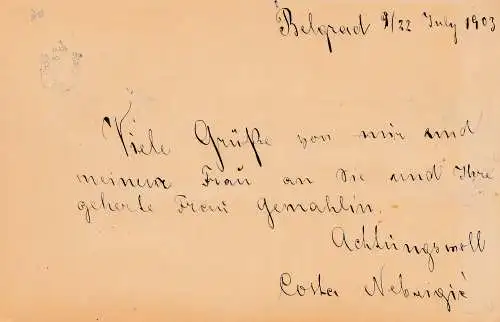 Belgrad 9/22 July 1903
Viele Grüße von mir und
meiner Frau an Sie und Ihre
geherte Frau Gemahlin.
Achtungsvoll
Costa